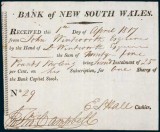 BANK OF NEW SOUTH WALES.
RECEIVED the 5 Day of April 1817
from John Wentworth Esquire
by the Hand of D. Wentworth Esq.
the Sum of Twenty
Pounds Sterling being Instalment of 25
per Cent. on this Subscription, for One Share of
the Bank Capital Stock.
No 29
E S Hall Cashier.
Campbell